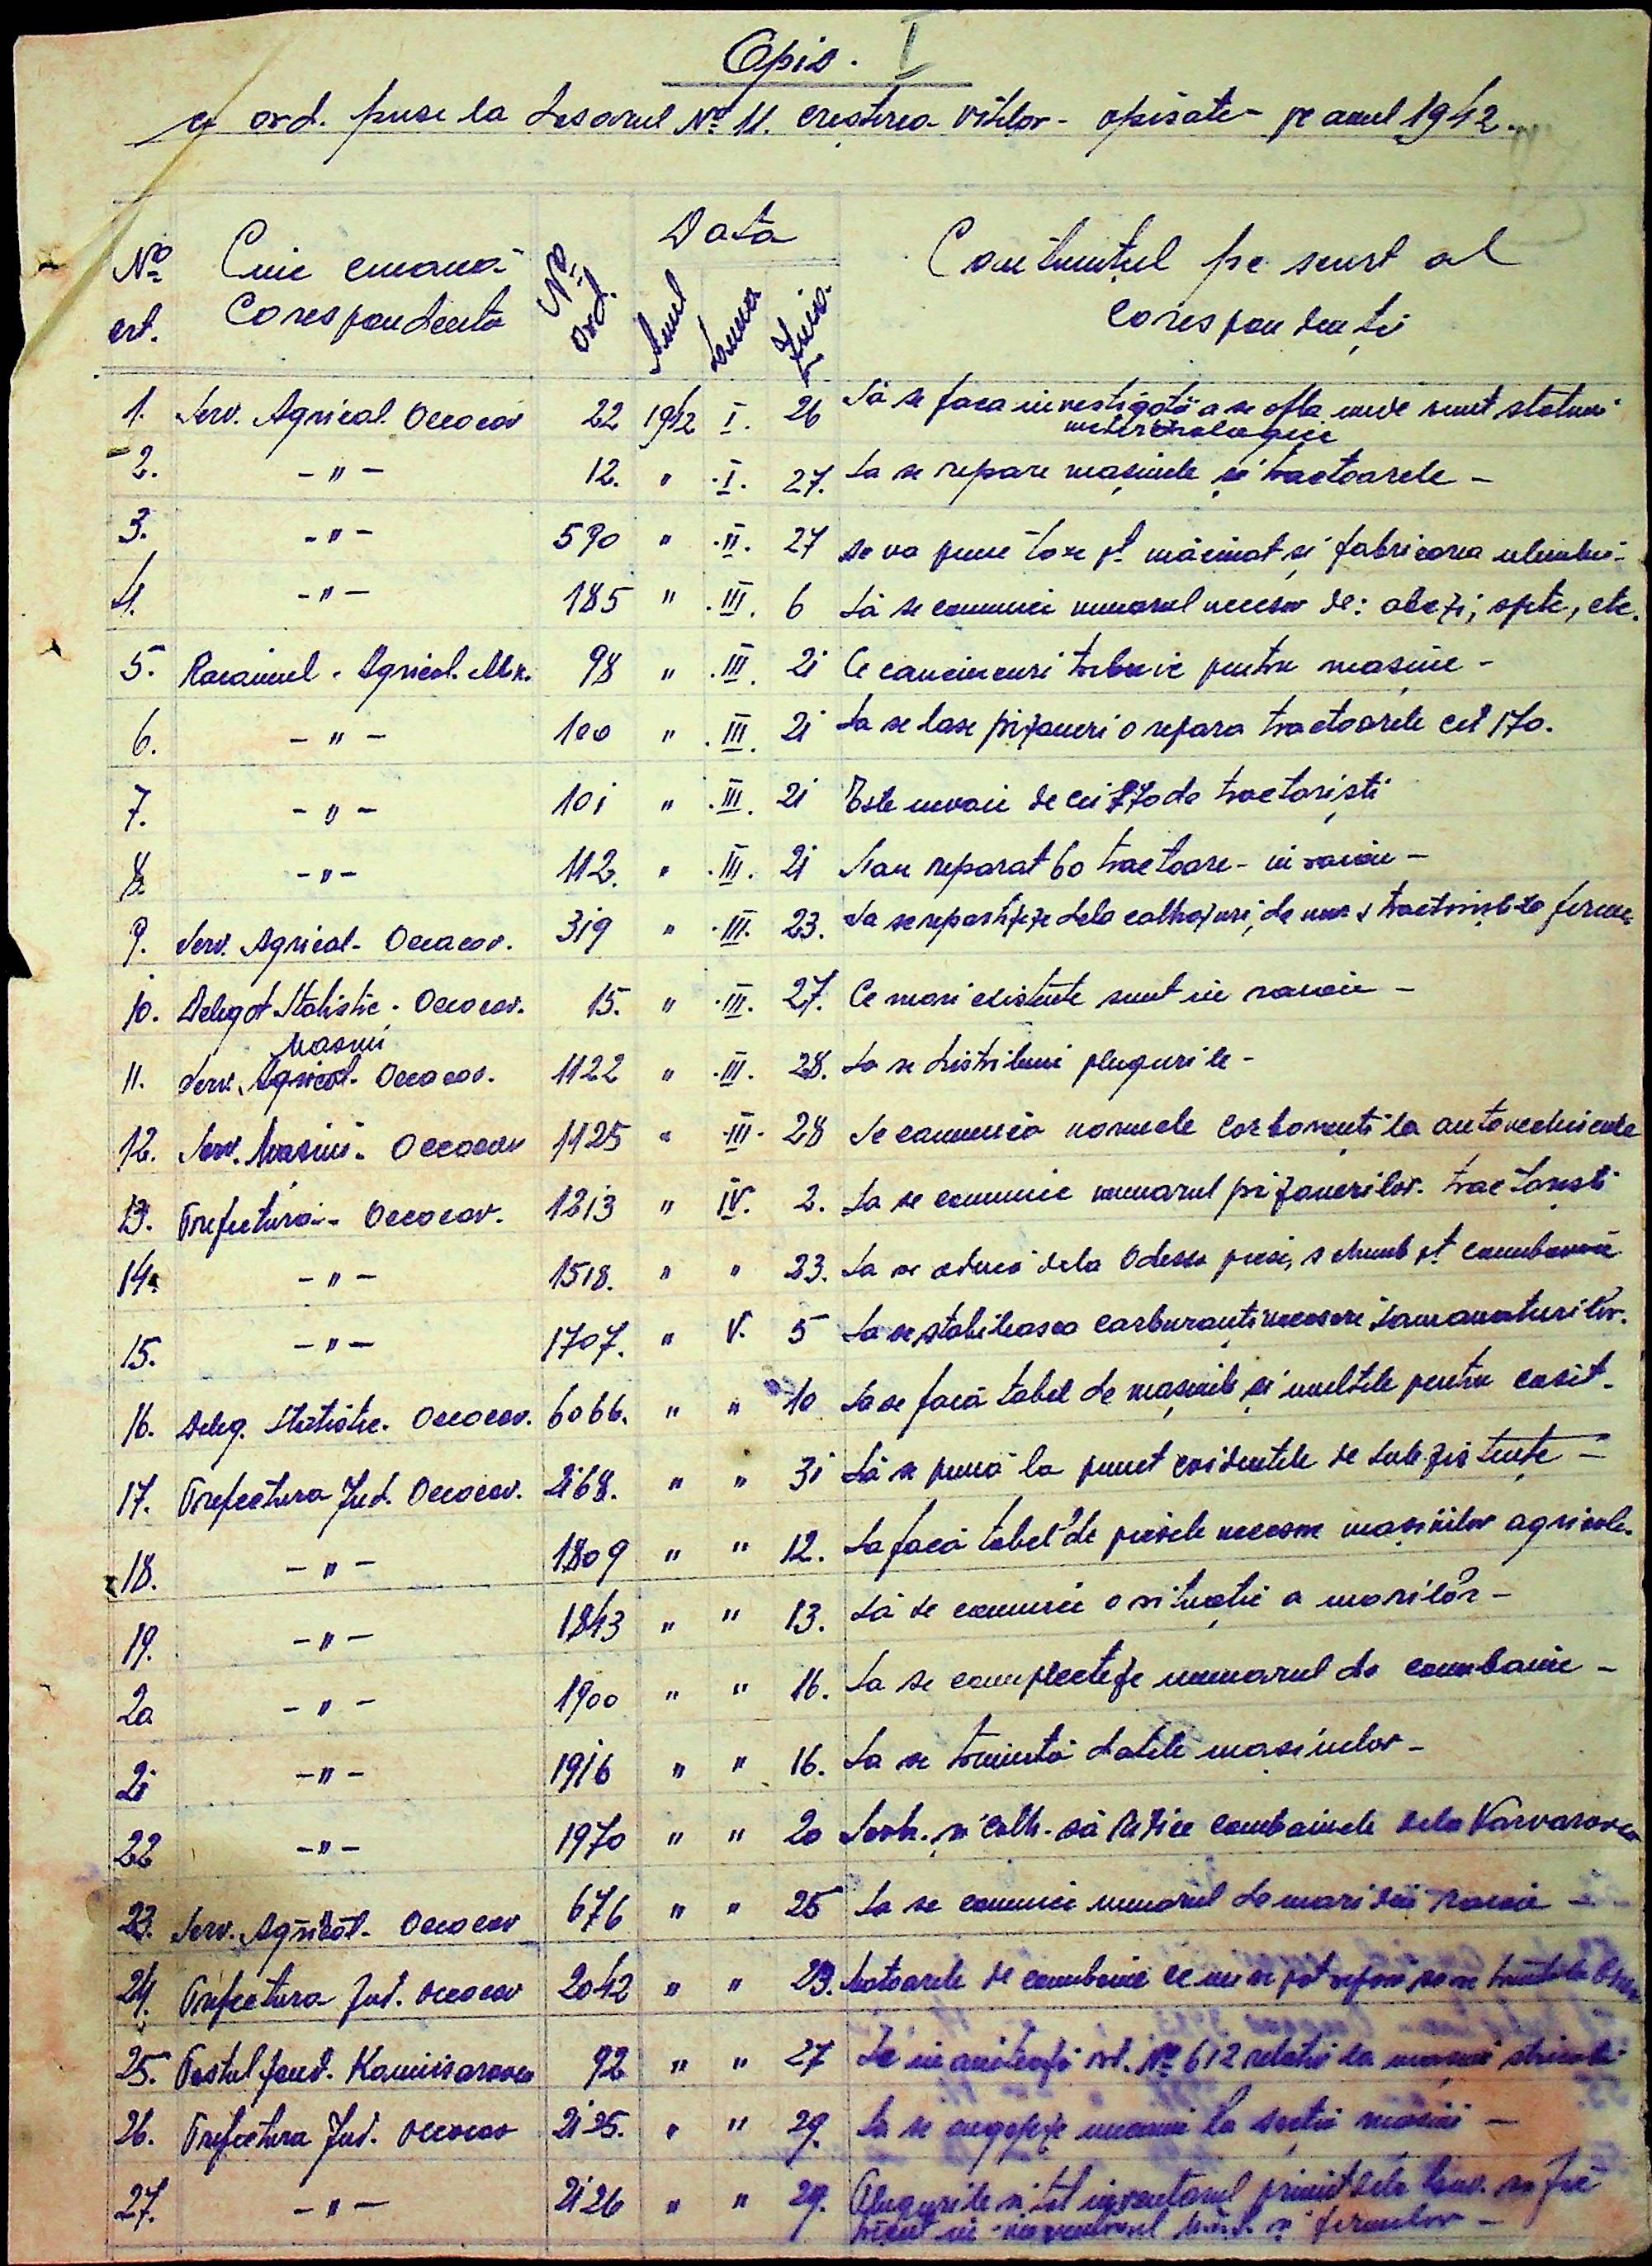 Opis. I
cu ord. puse la dosarul Nº 11. creșterea vitelor - opisate - pe anul 1942.
Nº crt. Cine emană Corespondenta Nº ord. Data Anul Luna Ziua Conținutul pe scurt al corespondenței
1. Serv. Agricol. Oceacov 22 1942 I. 26 Să se faca investigații a se afla unde sunt stațiuni
meteorologice
2. - " - 12. " I. 27. Sa se repare mașinele și tractoarele -
3. - " - 590 " II. 27 se va pune taxe pt. măcinat și fabricarea uleiului -
4. - " - 185 " III. 6 Să se comunice numarul necesar de: abezi, spete, etc.
5. Raionul. Agricol. 98 " III. 21 Ce cauciucuri trebuie pentru mașine -
6. - " - 100 " III. 21 Sa se lase prizoneri a repara tractoarele
7. - " - 101 " III. 21 Este nevoie de tractoriști
8. - " - 112. " III. 21 S'au reparat 60 tractoare - in raion -
9. Serv. Agricol - Oceacov. 319 " III. 23. Sa se repartizeze dela colhozuri,
10. Delegat Statistic. Oceacov. 15. " III. 27. Ce mori existente sunt in raion -
Mașini
11. Serv. Agricol. Oceacov. 1122 " III. 28. Sa se distribuie plugurile -
12. Serv. Mașini. Oceacov 1125 " III. 28 Se comunică normele carboranți la autovechicule
13. Prefectura - Oceacov. 1213 " IV. 2. Sa se comunice numarul prizonerilor. tractoriști
14. - " - 1518. " " 23. Sa se aducă dela Odessa piese, schimb pt. combaine
15. - " - 1707. " V. 5 Sa se stabileasca carburanți necesare samanaturilor.
16. Deleg. Statistic. Oceacov. 6066. " " 10 Sa se facă tabel de mașinile și uneltele pentru cosit.
17. Prefectura Jud. Oceacov. 2168. " " 31 Să se pună la punct evidentele de subzistențe -
18. - " - 1809 " " 12. Sa facă tabel de piesele necesare mașinilor agricole.
19. - " - 1843 " " 13. Să se comunice o situație a morilor -
20 - " - 1900 " " 16. Sa se complecteze numarul de combaine -
21 - " - 1916 " " 16. Sa se trimită datele mașinelor -
22 - " - 1970 " " 20 Sovh. și colh. să ridice combainele dela Varvarovca
23. Serv. Agricol. Oceacov 676 " " 25 Sa se comunice numarul de mori din raion -
24. Prefectura Jud. Oceacov 2042 " " 23. Motoarele de combaine ce nu se pot repara sa se trimita la
25. Postul Jand. Komisarovca 92 " " 27 Se inaintează ord. Nº 612 relativ la
26. Prefectura Jud. Oceacov 2125. " " 29. Sa se angajeze la secția mașini -
27. - " - 2126 " " 29. Plugurile si tot inventarul primit dela
trecut in inventarul si fermelor -